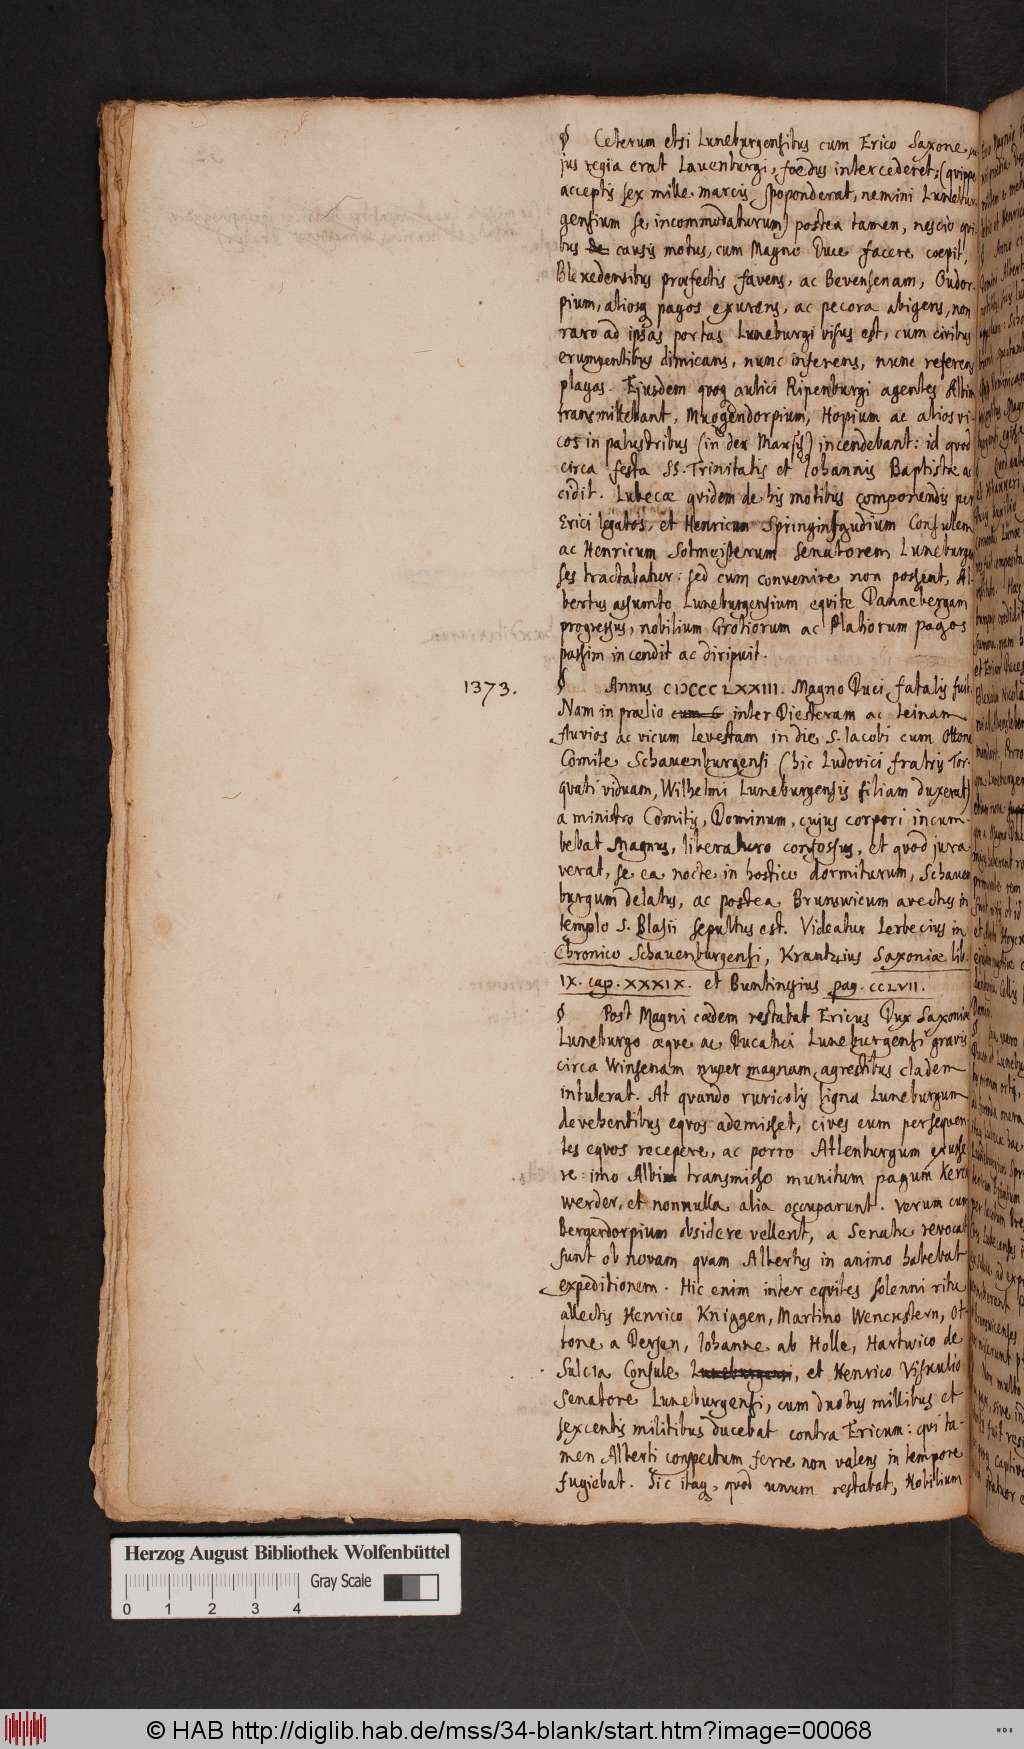 § Ceterum etsi Luneburgensibus cum Erico Saxone, cu-
jus regia erat Lauenburgi, foedus intercederet, (quippe
acceptis sex mille marcis spoponderat, nemini Lunebur-
gensium se incommodaturum) postea tamen, nescio qui-
bus de causis motus, cum Magno Duce facere coepit,
Blexedensibus praefectis favens, ac Bevensenam, Oudor-
pium, aliosq pagos exurens, ac pecora abigens, non
raro ad ipsas portas Luneburgi visus est, cum civibus
erumpentibus dimicans, nunc inferens, nunc referens
plagas. Ejusdem quoq aulici Ripenburgi agentes Albim
transmittebant, Muogendorpium, Hopium ac alios vi-
cos in palustribus (in der Marsch) incendebant: id quod
circa festa SS. Trinitatis et Johannis Baptistae ac
cidit. Lubecae quidem de his motibus componendis per
Erici legatos, et Henricum Springintgudium Consulem
ac Henricum Sotmeisterum Senatorem Luneburgen
ses tractabatur: sed cum convenire non possent, Al-
bertus assumto Luneburgensium equite Dannebergam
progressus, nobilium Grotiorum ac Platiorum pagos
passim incendit ac diripuit.
1373. § Annus CIↃCCCLXXIII. Magno Duci fatalis fuit.
Nam in praelio cum G inter Diesteram ac Leinam
fluvios ac vicum Levestam in die S. Jacobi cum Ottone
Comite Schauenburgensi (hic Ludovici fratris Tor-
quati viduam, Wilhelmi Luneburgensis filiam duxerat)
a ministro Comitis, Dominum, cujus corpori incum-
bebat Magnus, liberaturo confossus, et quod jura
verat, se ea nocte in hostico dormiturum, Schauen
burgum delatus, ac postea Brunswicum avectus in
templo S. Blasii sepultus est. Videatur Lerbecius in
Chronico Schauenburgensi, Krantzius Saxoniae lib.
IX. cap. XXXIX. et Buntingius pag. CCLVII.
§ Post Magni caedem restabat Ericus Dux Saxoniae
Luneburgo aeque ac Ducatui Luneburgensi gravis
circa Winsenam nuper magnam agrestibus cladem
intulerat. At quando ruricolis ligna Luneburgum
devehentibus equos ademisset, cives eum persequen
tes equos recepere, ac porro Atlenburgum exusse
re: imo Albim transmisso munitum pagum Kerc
werder, et nonnulla alia occuparunt. Verum cum
Bergerdorpium obsidere vellent, a Senatu revocati
sunt ob novam quam Albertus in animo habebat
expeditionem. Hic enim inter equites solenni ritu
allectis Henrico Kniggen, Martino Wenckstern, Ot-
tone a Dersen, Johanne ab Holle, Hartwico de
Sulcia Consule Luneburgensi, et Henrico Viskulio
Senatore Luneburgensi, cum duobus millibus et
sexcentis militibus ducebat contra Ericum: qui ta-
men Alberti conspectum ferre non valens in tempore
fugiebat. Sic itaq, quod unum restabat, Nobilium
Herzog August Bibliothek Wolfenbüttel
Gray Scale
0 1 2 3 4
© HAB http://diglib.hab.de/mss/34-blank/start.htm?image=00068